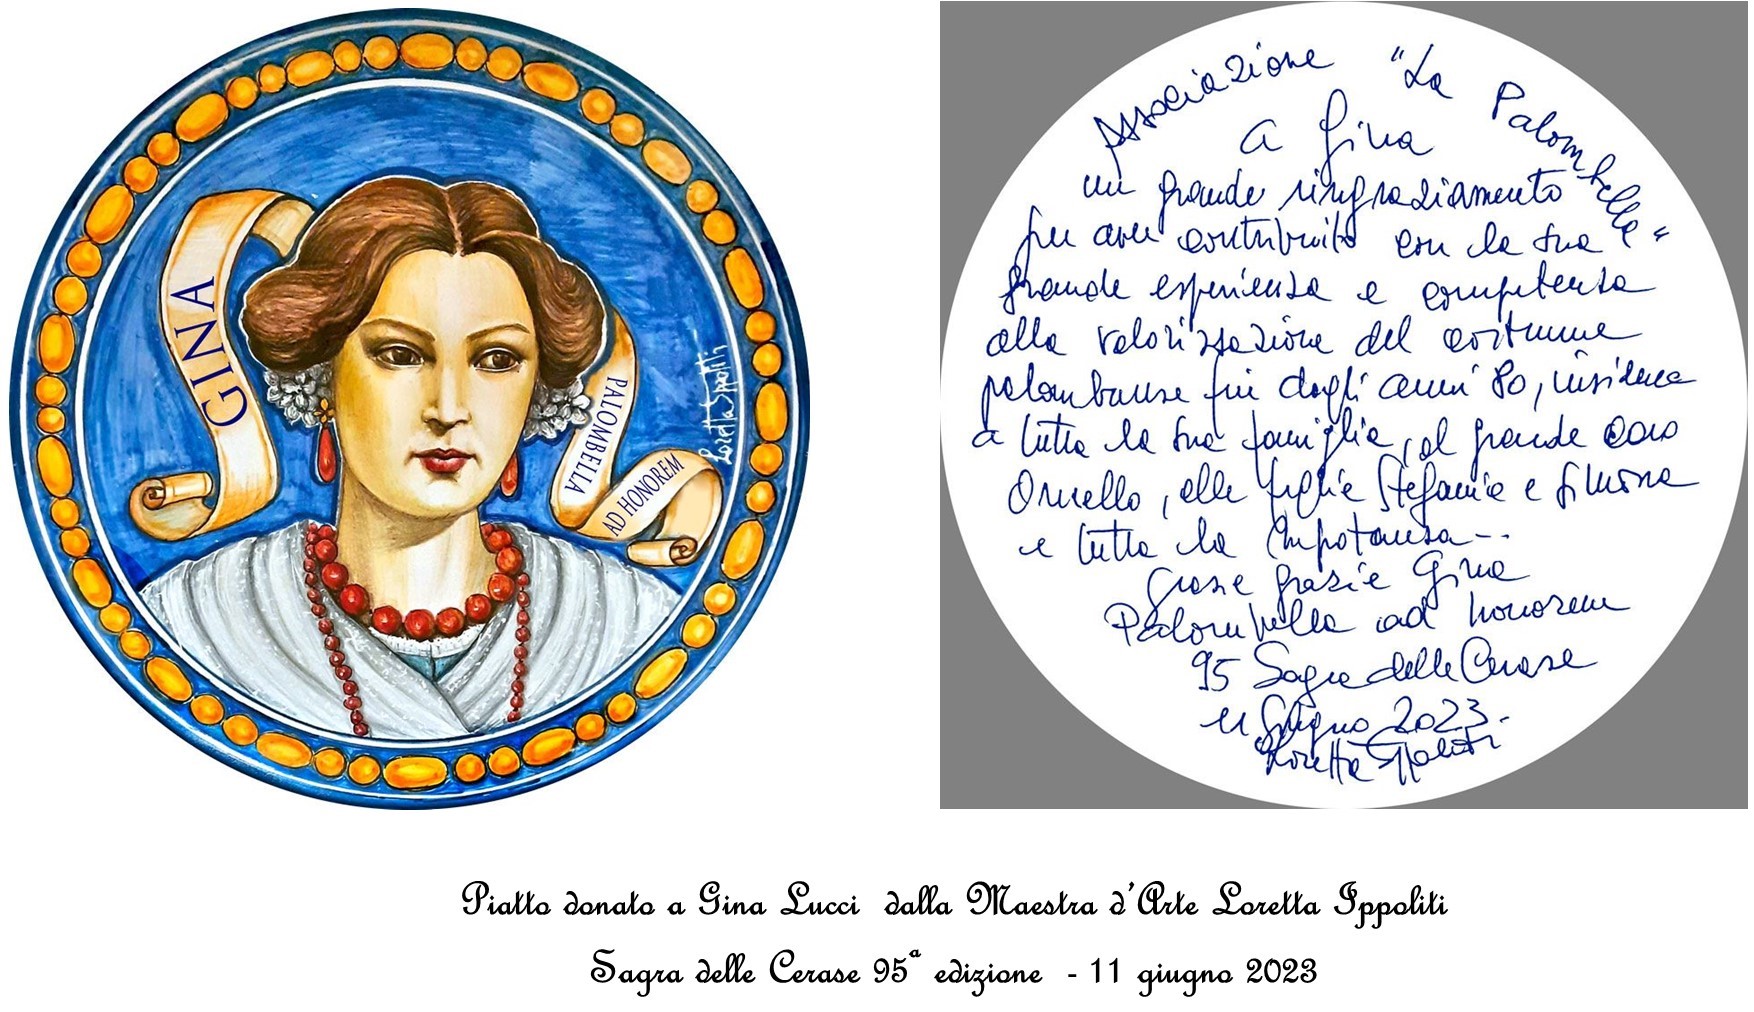 GINA
PALOMBELLA
AD HONOREM
Loretta Ippoliti
Associazione "La Palombella"
a Gina
un grande ringraziamento
per aver contribuito con la sua
grande esperienza e competenza
alla valorizzazione del costume
palombarese fin dagli anni 80, insieme
a tutta la sua famiglia, al grande
Ornello, alle figlie Stefania e Simona
e tutta la
Grazie grazie Gina
Palombella ad honorem
95 Sagra delle Cerase
11 Giugno 2023.
Loretta Ippoliti
Piatto donato a Gina Lucci dalla Maestra d'Arte Loretta Ippoliti
Sagra delle Cerase 95ª edizione - 11 giugno 2023